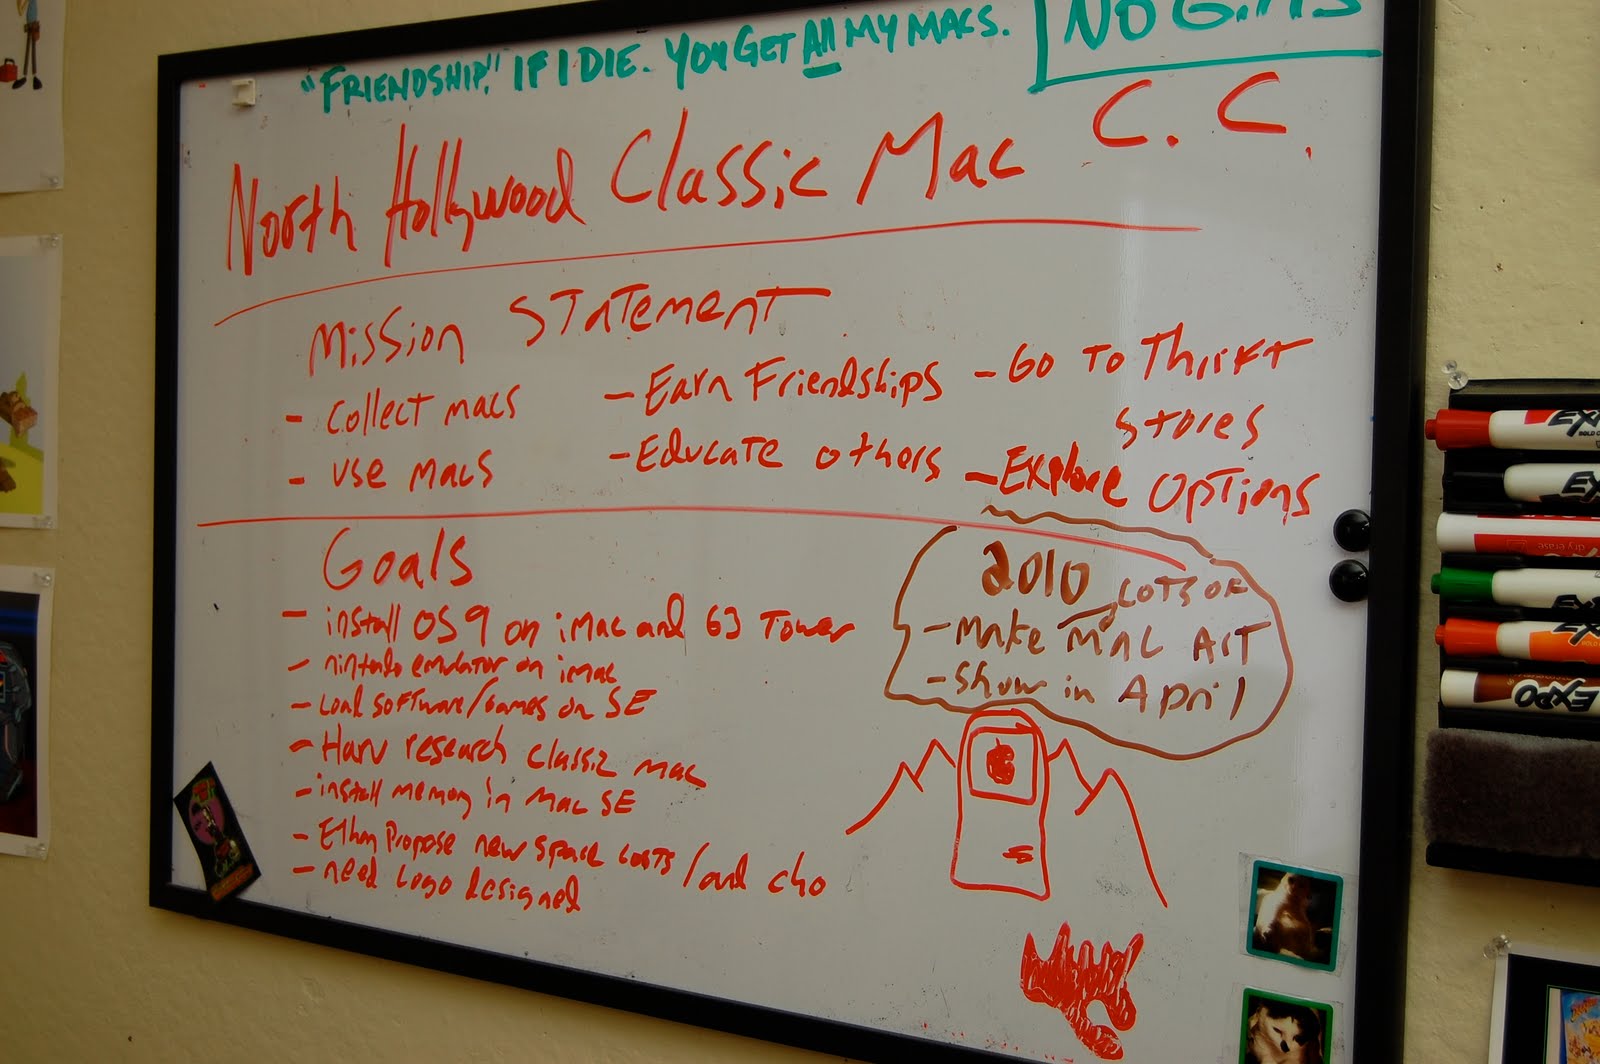 "FRIENDSHIP," IF I DIE. YOU GET All MY MACS.
NO GIRLS
North Hollywood Classic Mac C.C.
Mission Statement
- Collect macs
- Use macs
- Earn Friendships
- Educate others
- Go to Thrift
stores
- Explore Options
Goals
- install OS 9 on iMac and G3 Tower
- nintendo emulator on imac
- Load software/Games on SE
- Harv research classic mac
- install memory in Mac SE
- Ethan Propose new space costs/and
- need Logo designed
2010
LOTS OF
- Make Mac Art
- Show in April
EXPO
EXPO
dry erase
EXPO
EXPO
EXPO